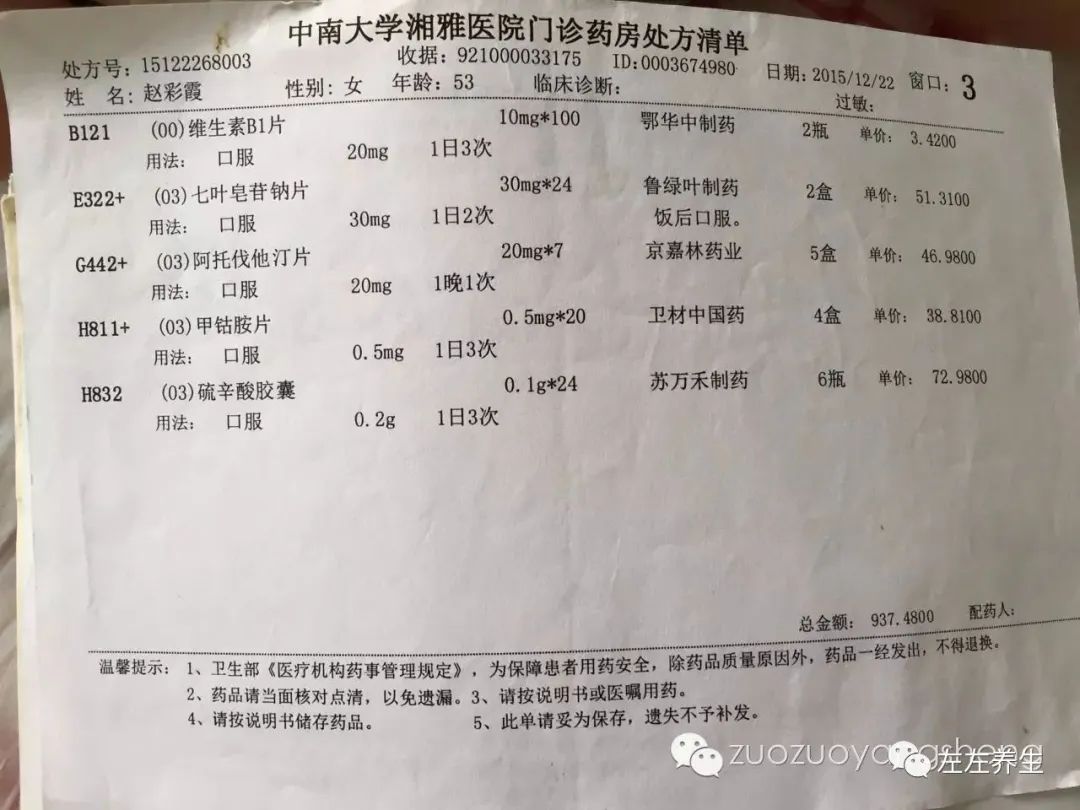 中南大学湘雅医院门诊药房处方清单
处方号：15122268003 收据：921000033175 ID:0003674980 日期：2015/12/22 窗口：3
姓 名：赵彩霞 性别：女 年龄：53 临床诊断： 过敏：
B121 (00)维生素B1片 10mg*100 鄂华中制药 2瓶 单价： 3.4200
用法： 口服 20mg 1日3次
E322+ (03)七叶皂苷钠片 30mg*24 鲁绿叶制药 2盒 单价： 51.3100
用法： 口服 30mg 1日2次 饭后口服。
G442+ (03)阿托伐他汀片 20mg*7 京嘉林药业 5盒 单价： 46.9800
用法： 口服 20mg 1晚1次
H811+ (03)甲钴胺片 0.5mg*20 卫材中国药 4盒 单价： 38.8100
用法： 口服 0.5mg 1日3次
H832 (03)硫辛酸胶囊 0.1g*24 苏万禾制药 6瓶 单价： 72.9800
用法： 口服 0.2g 1日3次
总金额： 937.4800 配药人：
温馨提示： 1、卫生部《医疗机构药事管理规定》，为保障患者用药安全，除药品质量原因外，药品一经发出，不得退换。
2、药品请当面核对点清，以免遗漏。3、请按说明书或医嘱用药。
4、请按说明书储存药品。 5、此单请妥为保存，遗失不予补发。
zuozuoyangsheng
左左养生